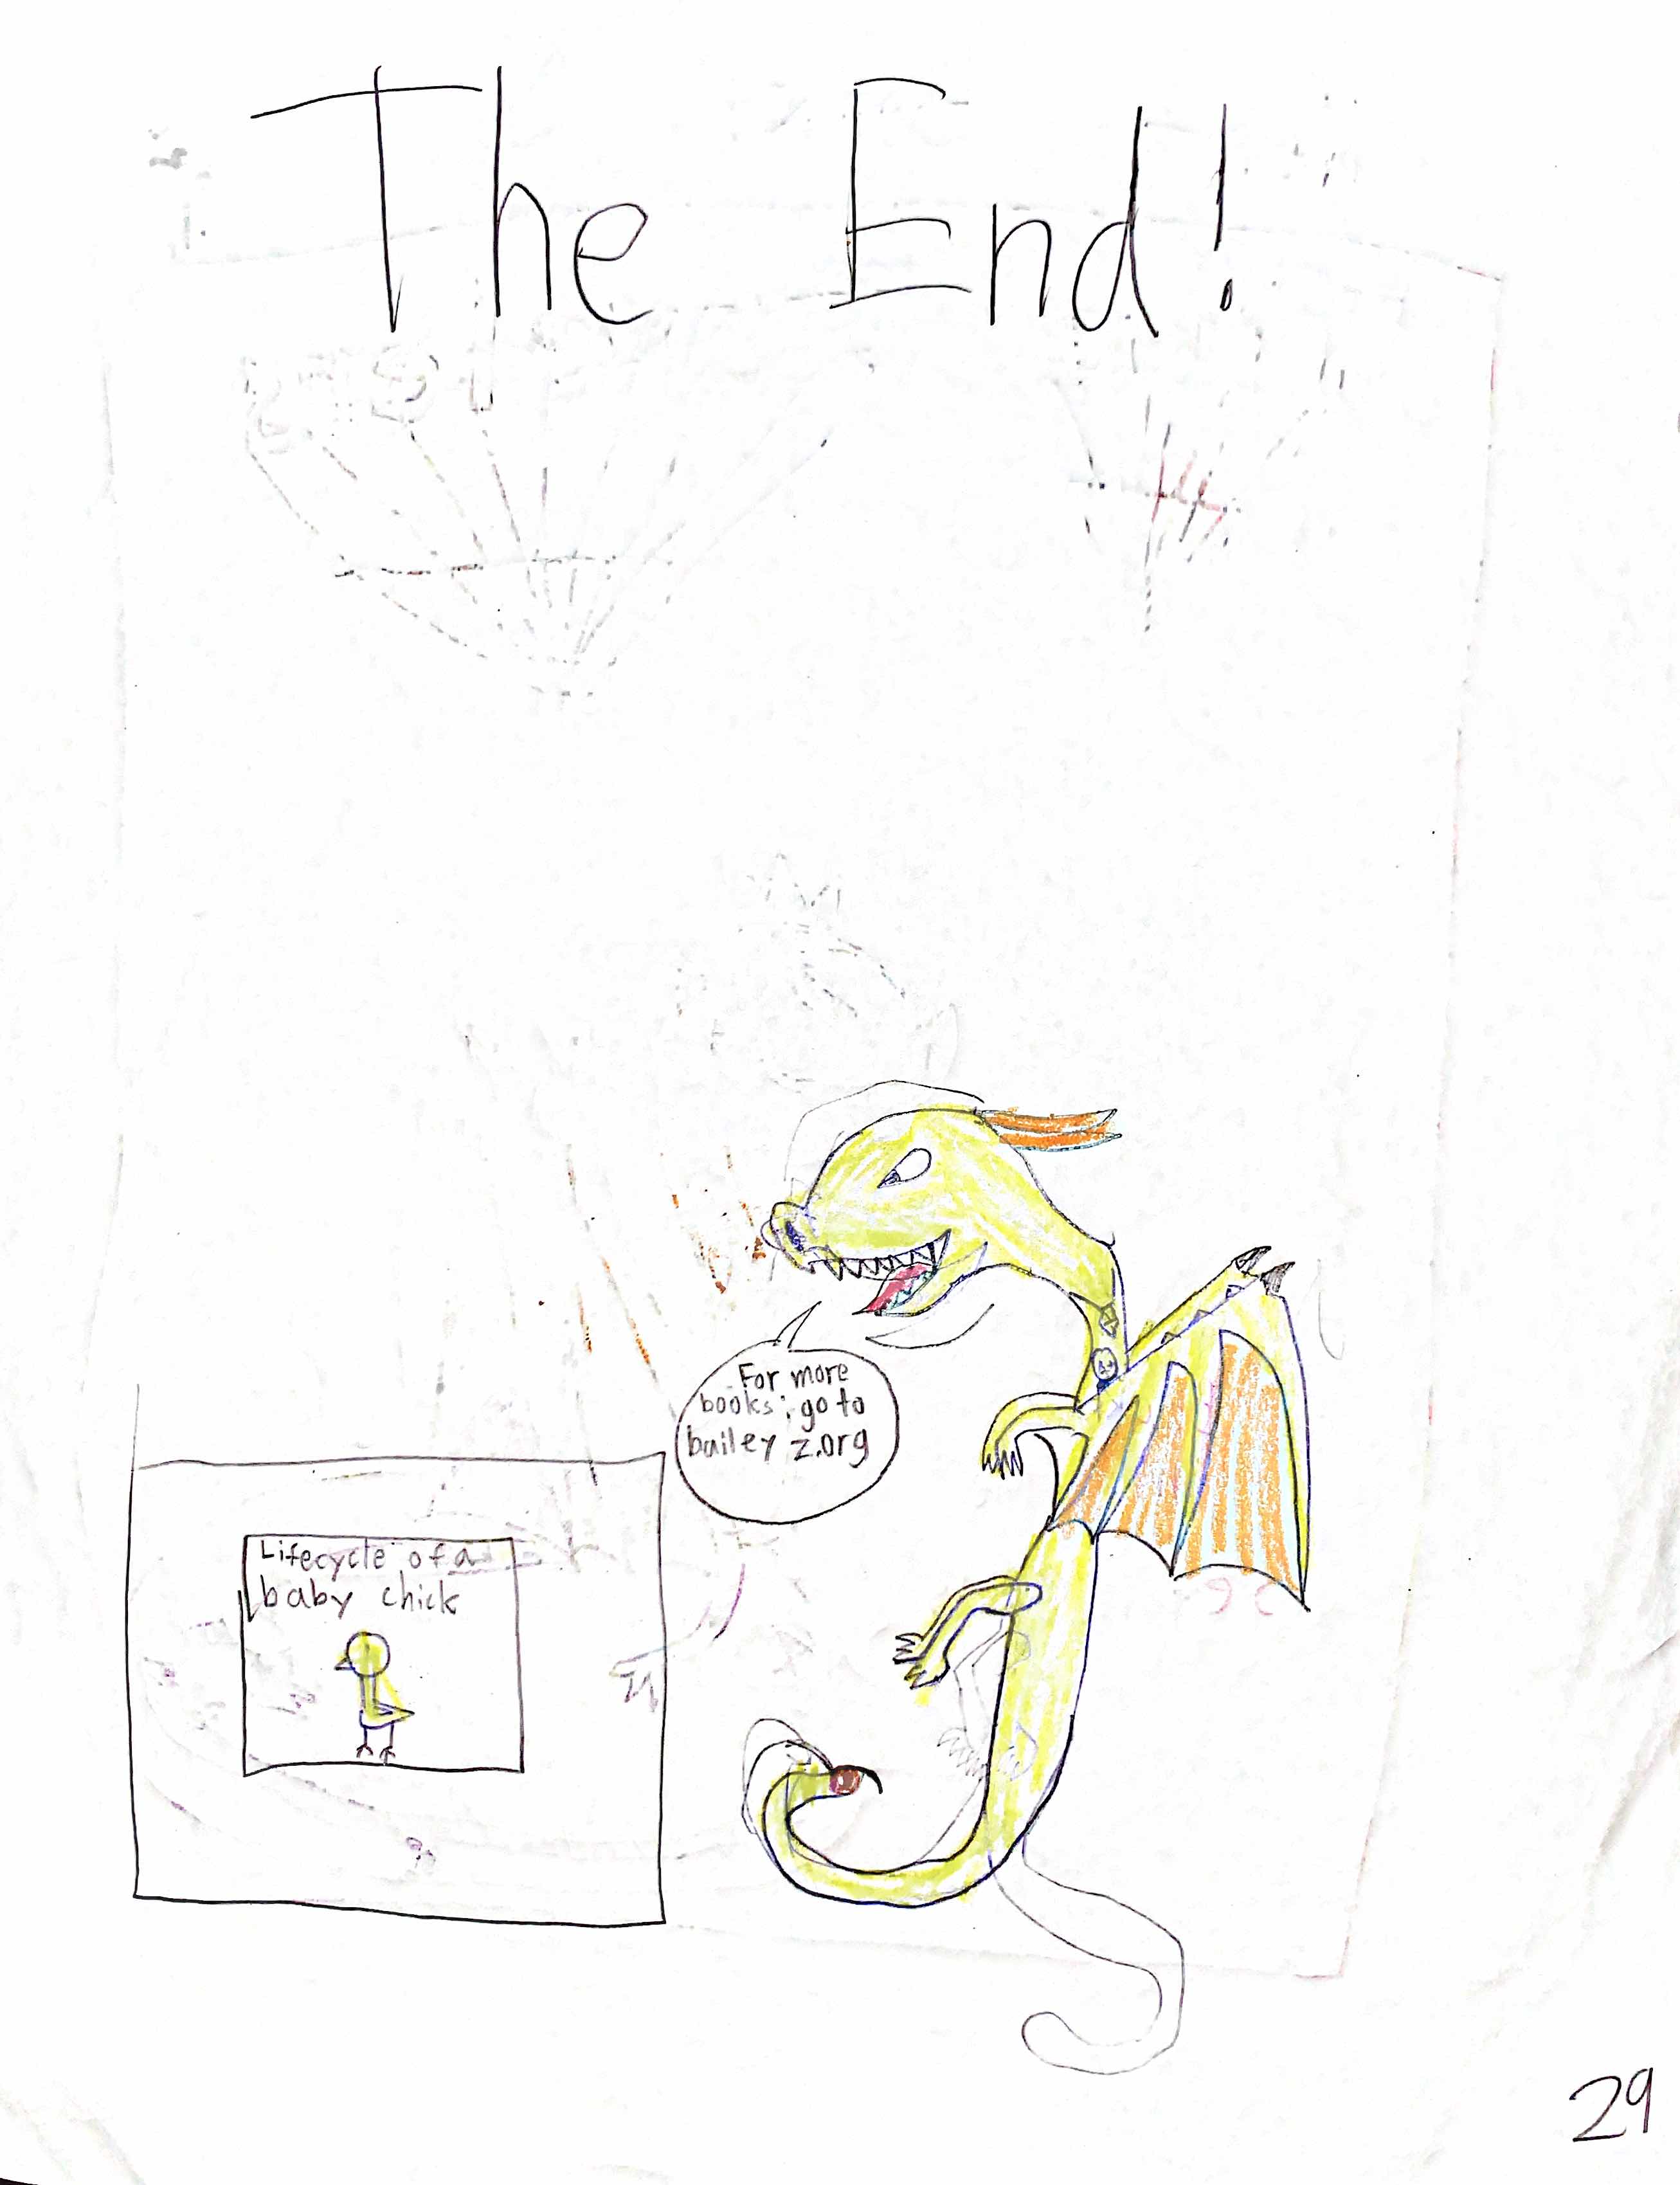 The End!
For more
books; go to
bailey z.org
Lifecycle of a
baby chick
29